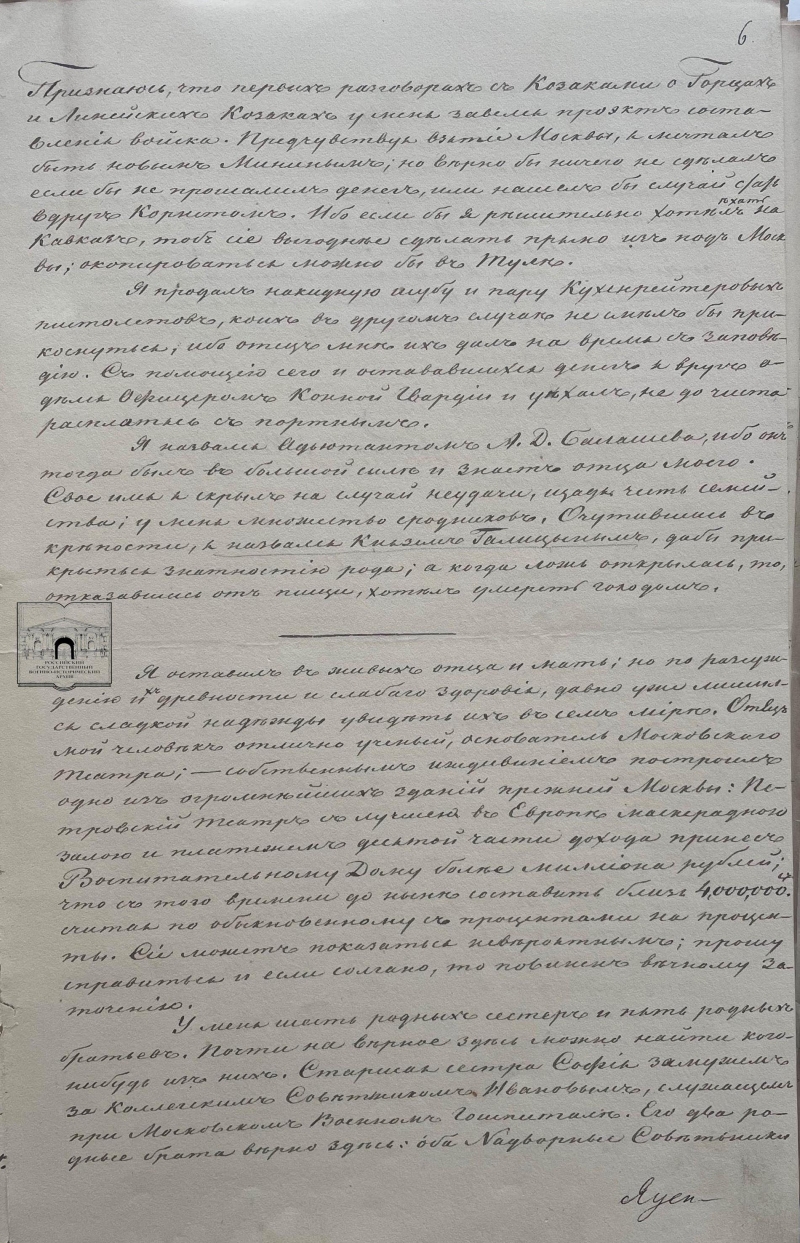 6.
Признаюсь, что первыхъ разговорахъ съ Козаками о Горцахъ
и Линейскихъ Козакахъ у меня завелся проэктъ соста-
вленія войска. Предчувствуя взятіе Москвы, я мечталъ
быть новымъ Мининымъ; но вѣрно бы ничего не сдѣлалъ
если бы не прошалилъ денегъ, или нашелъ бы случай стать
вдругъ Корнетомъ. Ибо если бы я рѣшительно хотѣлъ ѣхать на
Кавказъ, тобъ сіе выгоднѣе сдѣлать прямо изъ подъ Моск-
вы; экипироваться можно бы въ Тулѣ.
Я продалъ накидную шубу и пару Кухенрейтеровыхъ
пистолетовъ, коихъ въ другомъ случаѣ не смѣлъ бы при-
коснуться, ибо отецъ мнѣ ихъ далъ на время съ заповѣ-
дію. Съ помощію сего и остававшихся денегъ я вдругъ о-
дѣлся Офицеромъ Конной Гвардіи и уѣхалъ, не до чиста
расплатясь съ портнымъ.
Я назвался Адъютантомъ А. Д. Балашева, ибо онъ
тогда былъ въ большой силѣ и знаетъ отца моего.
Свое имя я скрылъ на случай неудачи, щадя честь семей-
ства; у меня множество сродниковъ. Очутившись въ
крѣпости, я назвался Княземъ Галицынымъ, дабы при-
крыться знатностію рода; а когда ложь открылась, то,
отказавшись отъ пищи, хотѣлъ умереть голодомъ.
РОССИЙСКИЙ
ГОСУДАРСТВЕННЫЙ
ВОЕННО-ИСТОРИЧЕСКИЙ
АРХИВ
Я оставилъ въ живыхъ отца и мать; но по разсуж-
денію ихъ древности и слабаго здоровія, давно уже лишил-
ся сладкой надѣжды увидѣть ихъ въ семъ мірѣ. Отецъ
мой человѣкъ отлично ученый, основатель Московскаго
театра; — собственнымъ иждивеніемъ построилъ
одно изъ огромнѣйшихъ зданій прежней Москвы: Пе-
тровскій театръ съ лучшею въ Европѣ маскерадною
залою и платежемъ десятой части дохода принесъ
Воспитательному Дому болѣе милліона рублей;
что съ того времени до нынѣ составитъ близъ 4,000,000.
считая по обыкновенному съ процентами на процен-
ты. Сіе можетъ показаться невѣроятнымъ; прошу
справиться и если солгано, то повиненъ вѣчному за-
точенію.
У меня шесть родныхъ сестеръ и пять родныхъ
братьевъ. Почти на вѣрное здѣсь можно найти кого-
нибудь изъ нихъ. Старшая сестра Софія замужемъ
за Коллежскимъ Совѣтникомъ Ивановымъ, служащимъ
при Московскомъ Военномъ Гошпиталѣ. Его два ро-
дные брата вѣрно здѣсь: оба Надворные Совѣтники